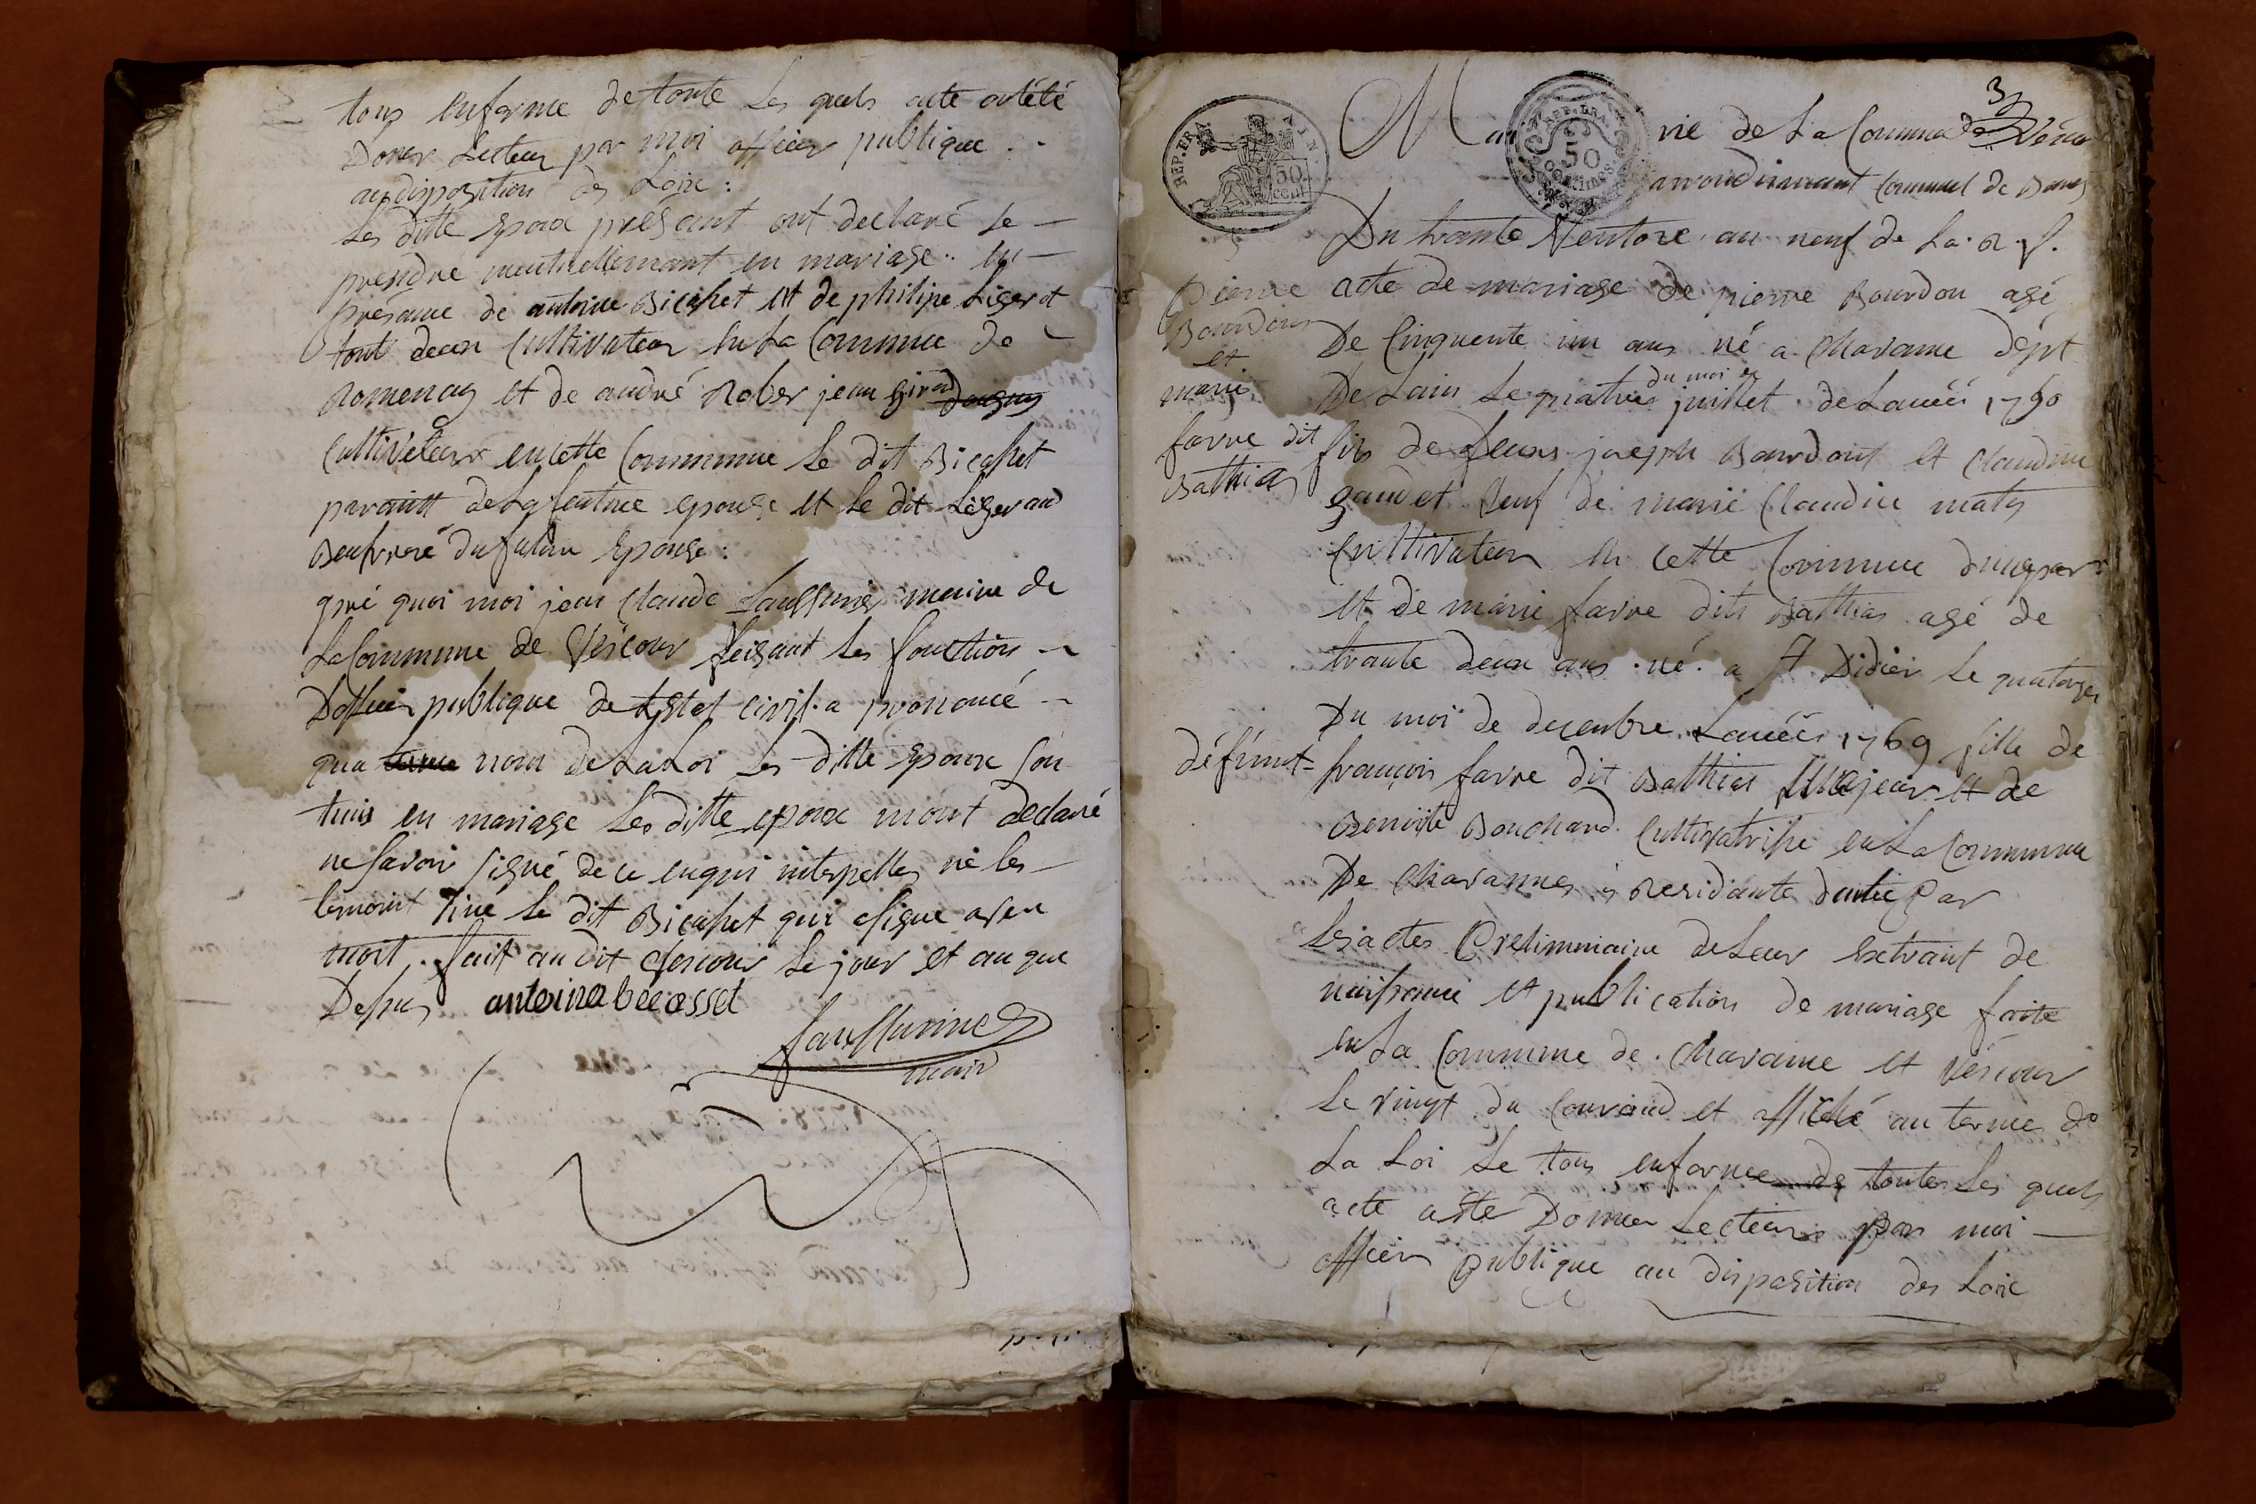 tous enforme de toute les quels acte ont été
Doner Lecteur par moi officier publique . .
au disposition des Loix :
Les ditte Epoux présant ont déclaré se —
prendre mentuellemant en mariage .. en —
présance de antoine Bicahet et de philipe Ligerot
tout deux Cultivateur en La Commune de
Romenay et de andré Rober jean girand
Cultivateur en cette Commune le dit Bicahet
parantt de La feutree epouse et le dit Ligerand
Beufreré du futur Epouse :
qpré quoi moi jean Claude Sauffurine maire de
La Commune de Vescour feisant les fonction ~
Dofficier publique de L Etat civil a prononcé ~
qu a nom de La Loi les ditte Epoux son
tunis en mariage les ditte epoux mont declaré
ne savoir signé de ce enqui interpelles ni les —
temoint sine le dit Bicahet qui signe avec
moit . fait au dit Vescour le jour et an que
Desus antoine becasset
Sauffurine
mair
3
REP. FRA. 50 cent
REP. FRA. 50 CENTIMES
Mairie de La Commune de Véscou
arrondisemant Communel de Bourg
Du trante Ventose an neuf de La . R . f .
Pierre
Bourdon
et
marie
farre dit
Bathia
acte de mariage de pierre Bourdon agé
De Cinquente un ans né a Chavanne dépt
du moi de
De Lain Le quatres juillet de Lanéé 1750
fils de feux joseph Bourdont et Claudine
gaudet veuf de marie Claudine maty
Cultivateur en cette Commune dunepar
et de marie farre dit Bathias agé de
trante deux ans . né . a St Didier Le quatorzes
Du moi de decembre Lanéé 1769 fille de
défunt - françois farre dit Bathias majeur et de
Benoite Bouchard Cultivatrise en La Commune
De Chavannes residante dautre Par
Les actes Preliminaire de Leur Extrait de
naisance et publication de mariage faite
en La Commune de Chavanne et Véscour
Le vingt du Courand et affiché au termes do
La Loi Le tous enforme de toutes Les quels
acte a été Donner Lecteur par moi —
officier publique au disposition des Loix